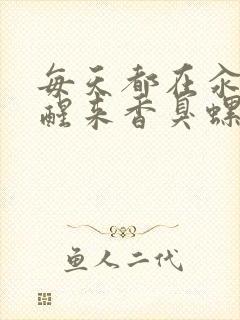 每天都在汆
醒来香臭螺
鱼人二代